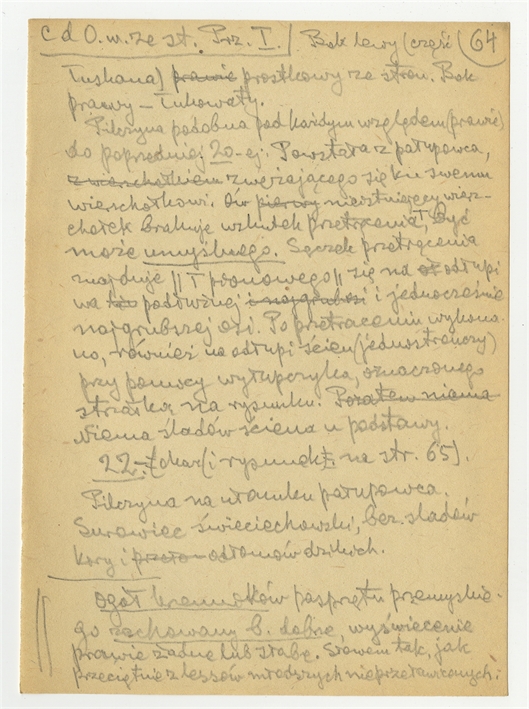 c d O. w. ze st. Prz. I.) Bok lewy (część (64
łuskana) prawie prostkowy ze stron. Bok
prawy – łukowaty.
Pilczyna podobna pod każdym względem (prawie)
do poprzedniej 20-ej. Powstała z półupowca,
z wierzchołkiem zwężającego się ku swemu
wierzchołkowi. Ów pierwszy nieistniejący wierz-
chołek brakuje wskutek przetrącenia, być
może umyślnego. Sęczek przetrącenia
znajduje || T pionowego || się na odłupi
na podłużnej i najgrubszej i jednocześnie
najgrubszej osi. Po przetrąceniu wykona-
no, również na odłupi ścien (jednostrończy)
przy pomocy wyłupczyka, oznaczonego
strzałką na rysunku. Pozatem niema
Niema śladów ściena u podstawy.
22. [char (i rysunek na str. 65].
Pilczyna na ułamku półupowca.
Surowiec świeciechowski, bez śladów
kory i odłomów dzikich.
Ogół krzemyków posprzętu przemyskie-
go zachowany b. dobrze, wyświecenie
prawie żadne lub słabe. Słowem tak, jak
przeciętnie z lessów młodszych nieprzetawiconych i